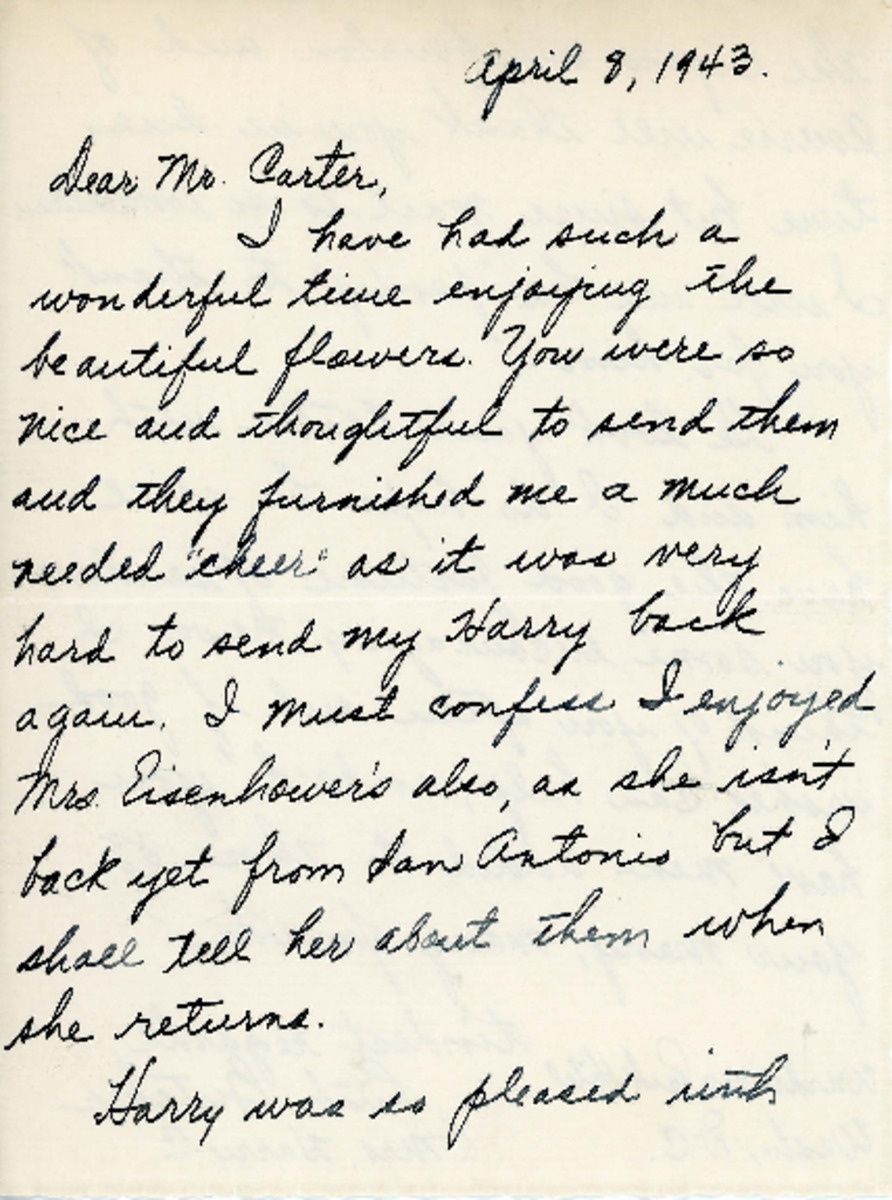 April 8, 1943.
Dear Mr. Carter,
I have had such a
wonderful time enjoying the
beautiful flowers. You were so
nice and thoughtful to send them
and they furnished me a much
needed "cheer" as it was very
hard to send my Harry back
again. I must confess I enjoyed
Mrs. Eisenhower's also, as she isn't
back yet from San Antonio but I
shall tell her about them when
she returns.
Harry was so pleased with